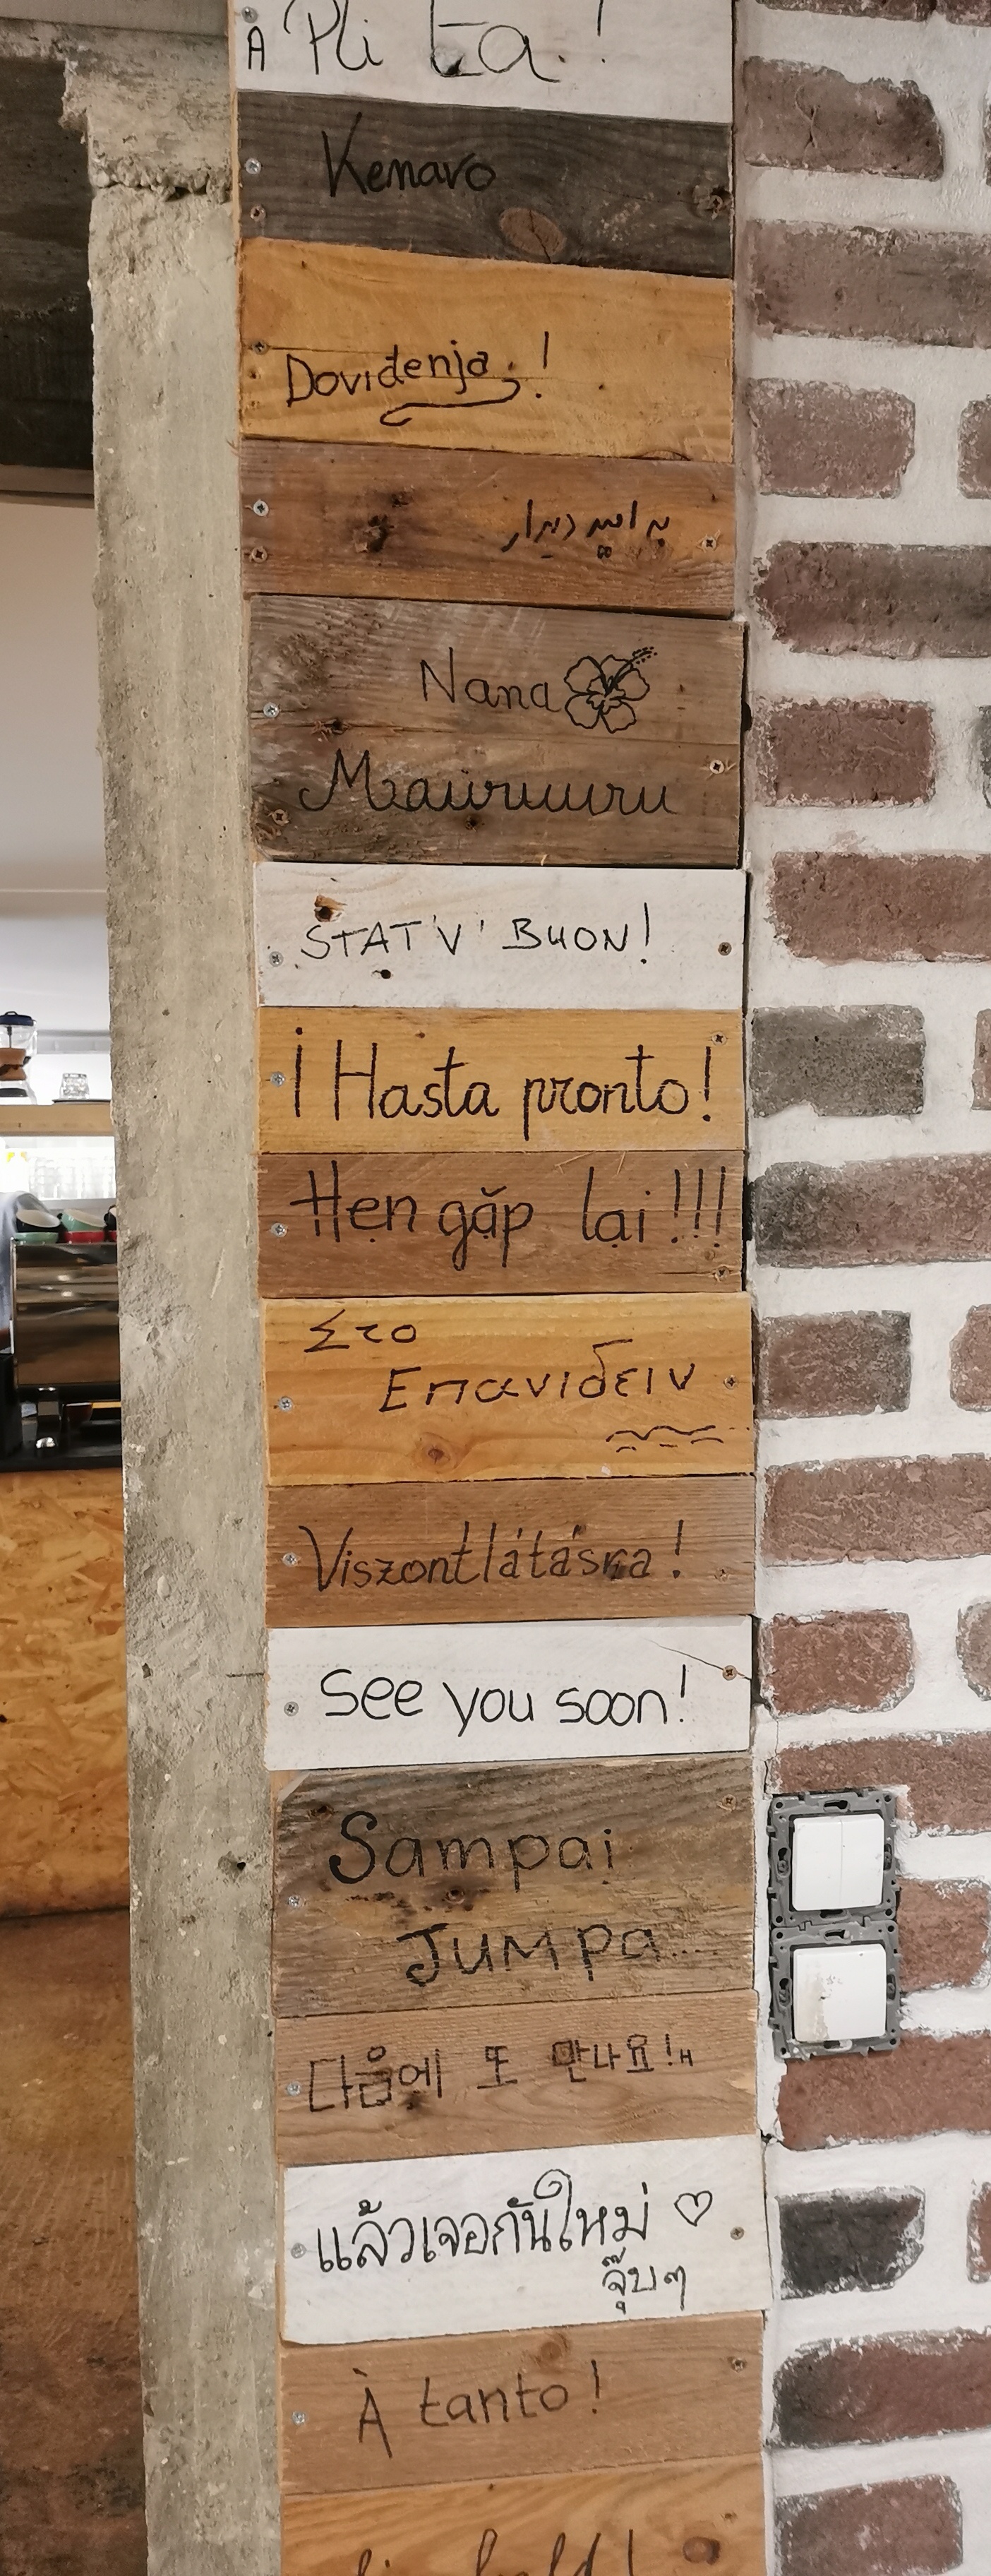 A Pli ta.!
Kenavo
Doviđenja!
به امید دیدار
Nana
Mauruuru
STAT'V' BUON!
¡Hasta pronto!
Hẹn gặp lại!!!
Στο
Επανιδειν
Viszontlátásra!
see you soon!
Sampai
Jumpa...
다음에 또 만나요!
แล้วเจอกันใหม่ ♡
จุ๊บๆ
À tanto!